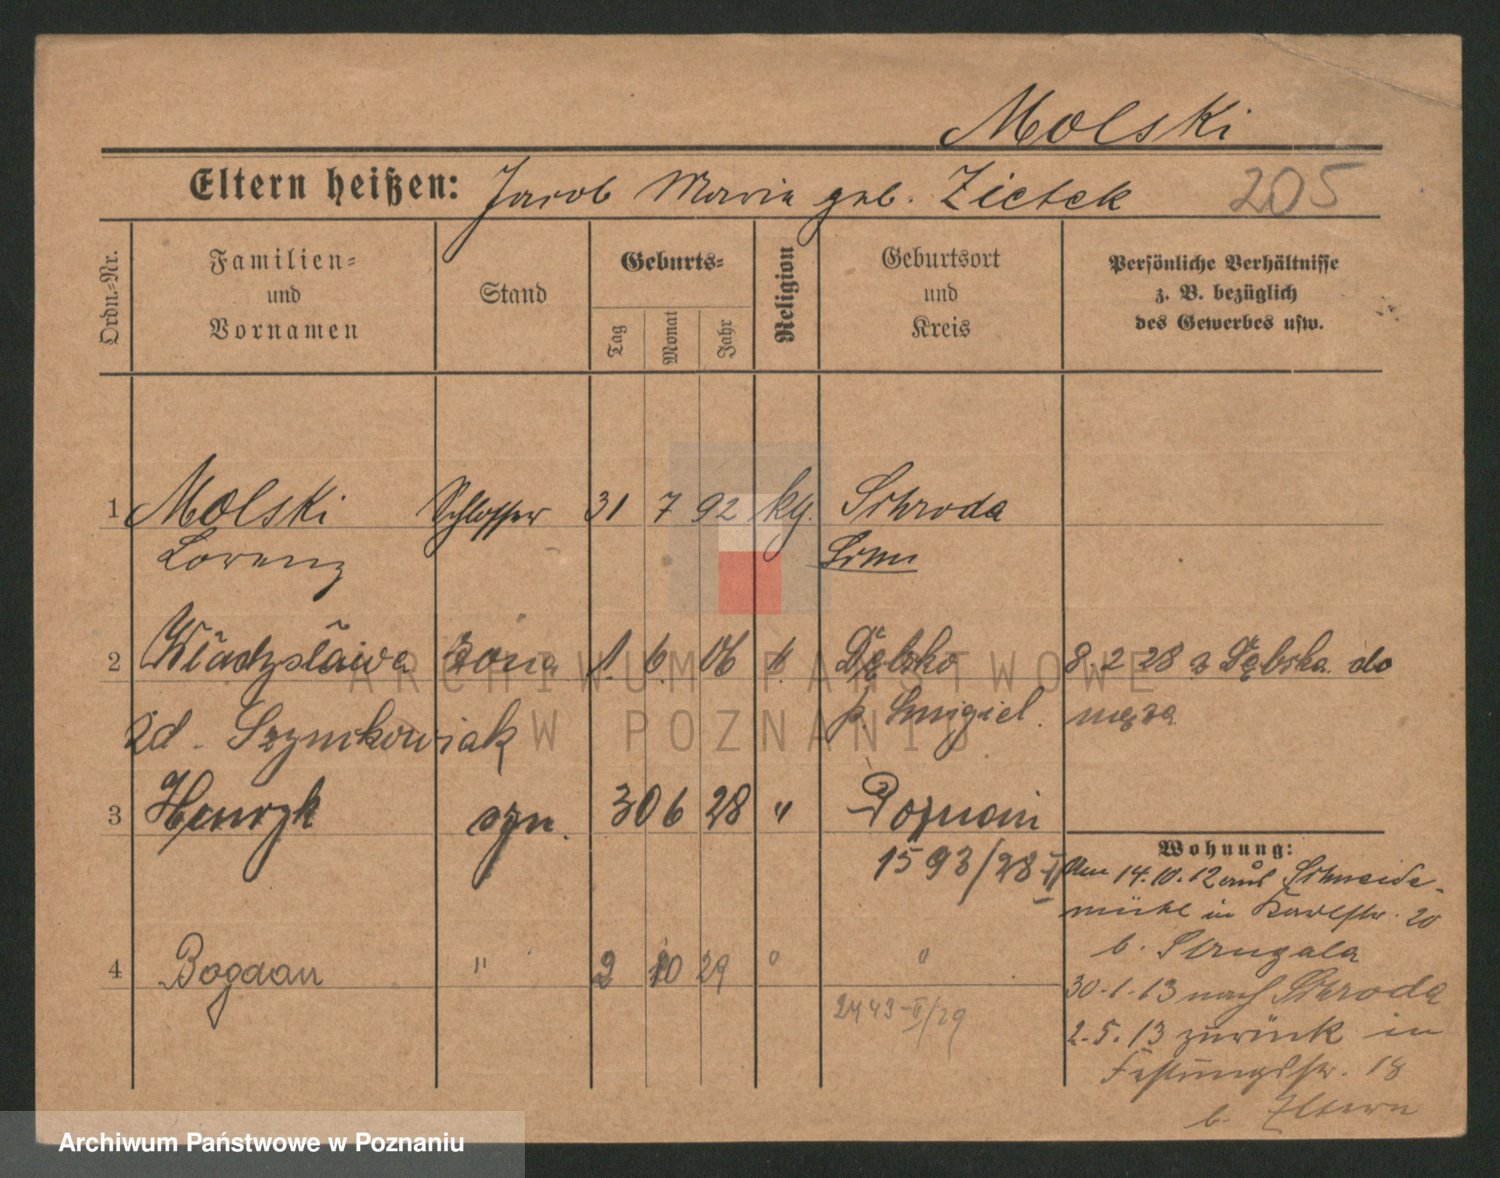 Molski
Eltern heißen: Jacob Marie geb. Zietek 205
Ordn.-Nr.
Familien- und Vornamen
Stand
Geburts-
Tag Monat Jahr
Religion
Geburtsort und Kreis
Persönliche Verhältnisse z. B. bezüglich des Gewerbes usw.
1 Molski Schlosser 31 7 92 kg. Schroda
Lorenz
2 Władysława żona 1. 6. 06 " Dębsko 8 2 28 z Dębska do
zd. Szymkowiak p. Smigiel. męża
3 Henryk syn. 30 6 28 " Poznań
1593/28 II
Wohnung:
Am 14.10.12 aus Schneide-
mühl in Karlstr. 20
b. Strugala
4 Bogdan " 2 10 29 " "
30.1.13 nach Schroda
2443-II/29
2.5.13 zurück in
Festungsstr. 18
b. Eltern
ARCHIWUM PAŃSTWOWE
W POZNANIU
Archiwum Państwowe w Poznaniu